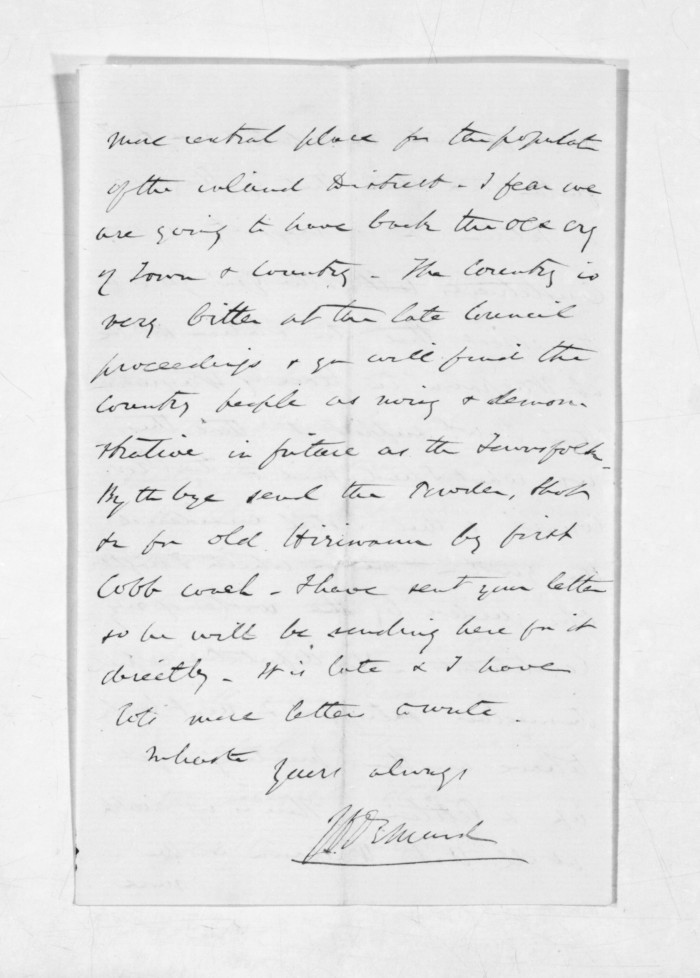 more central place for the populat
of the inland District - I fear we
are going to have back the old cry
of Town & Country - The Country is
very bitter at the late Council
proceedings & you will find the
Country people as noisy & demon-
strative in future as the Townsfolk -
By the bye send the Powder, Shot
&c for old Hiriwanu by first
Cobb coach - I have sent your letter
so he will be sending here for it
directly - It is late & I have
lots more letters to write.
In haste
Yours always
J D Ormond